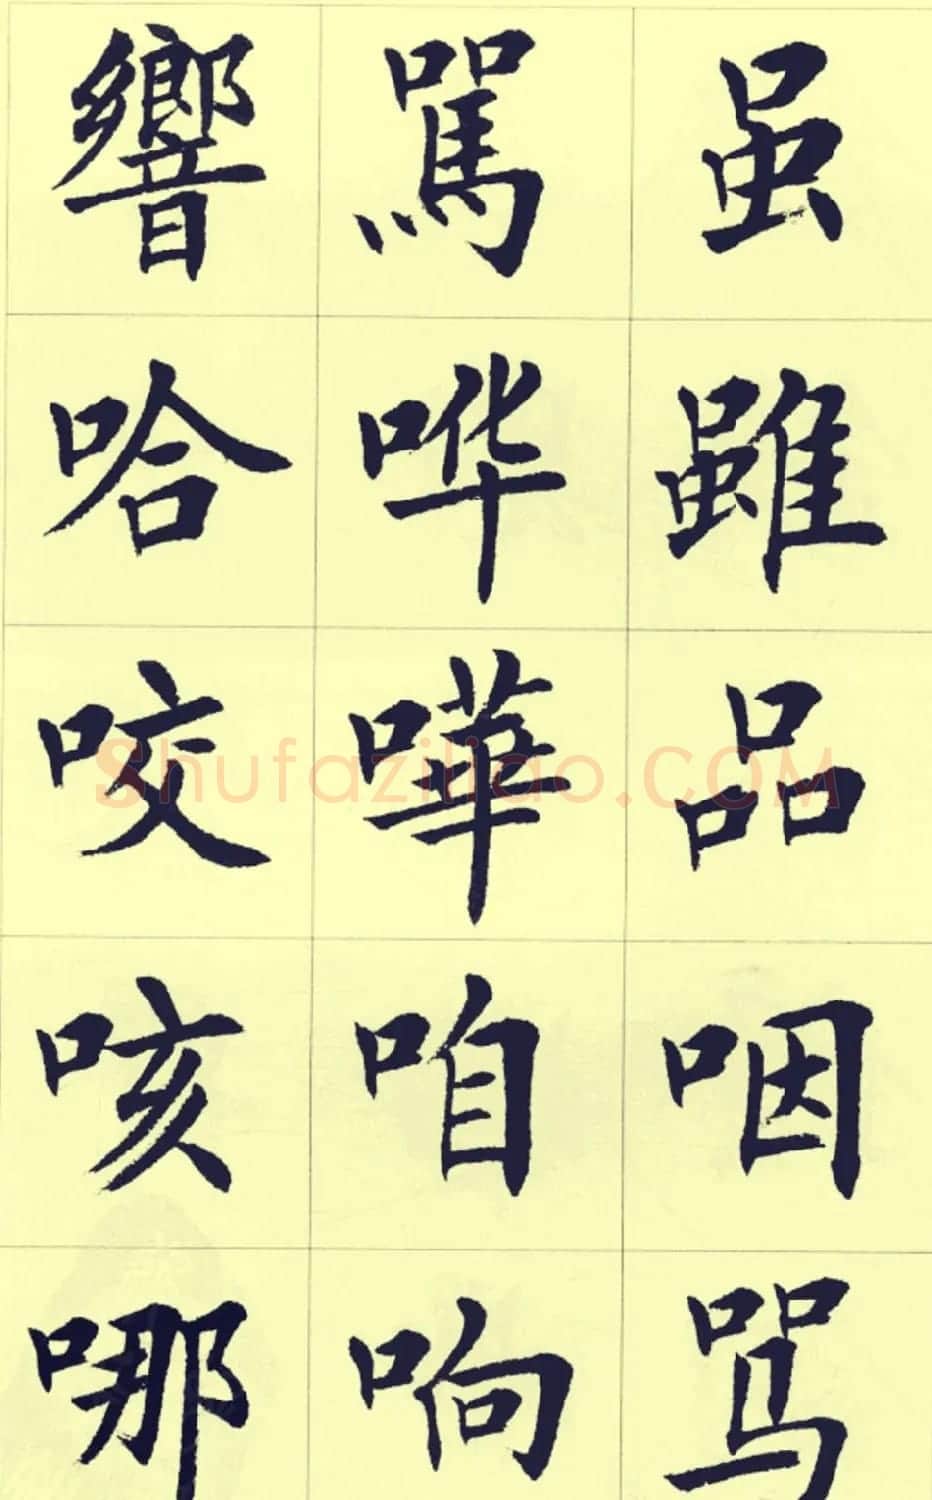 虽雖品咽骂
駡哗嘩咱响
響哈咬咳哪
Shufaziliao.COM